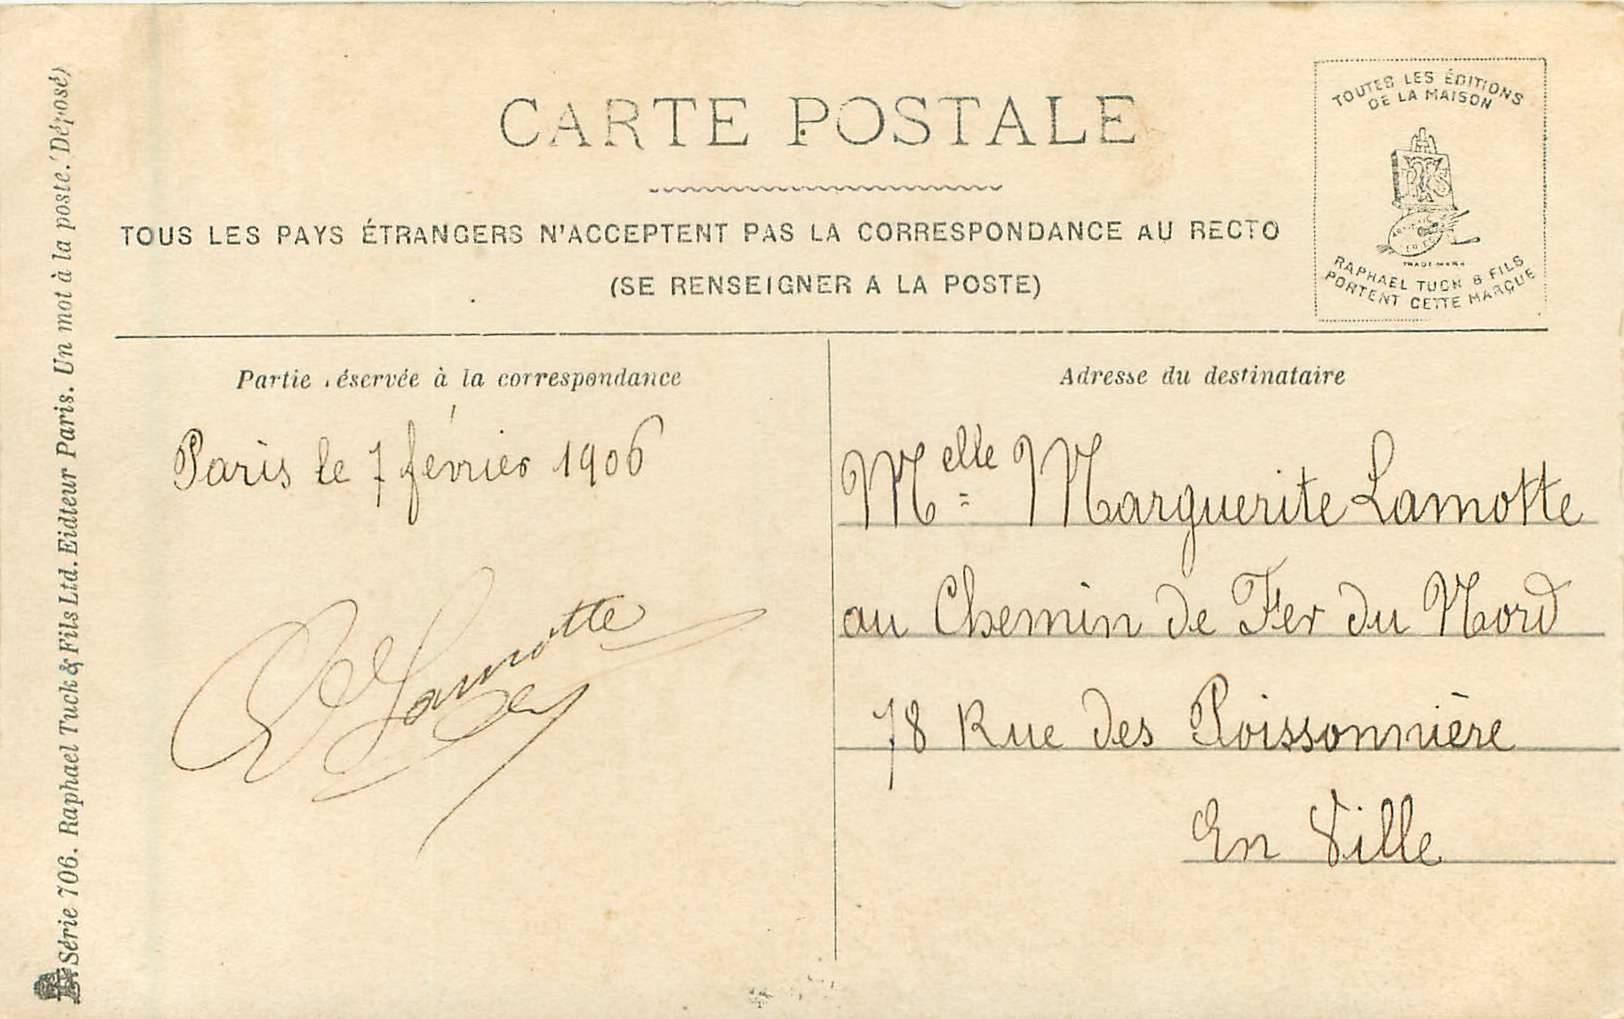 CARTE POSTALE
TOUS LES PAYS ÉTRANGERS N'ACCEPTENT PAS LA CORRESPONDANCE AU RECTO
(SE RENSEIGNER A LA POSTE)
TOUTES LES ÉDITIONS
DE LA MAISON
TRADE MARK
RAPHAEL TUCK & FILS
PORTENT CETTE MARQUE
Partie réservée à la correspondance
Paris le 7 février 1906
Lamotte
Adresse du destinataire
Melle Marguerite Lamotte
au Chemin de Fer du Nord
78 Rue des Poissonnière
En Ville
Série 706. Raphael Tuck & Fils Ltd. Eidteur Paris. Un mot à la poste. (Déposé)